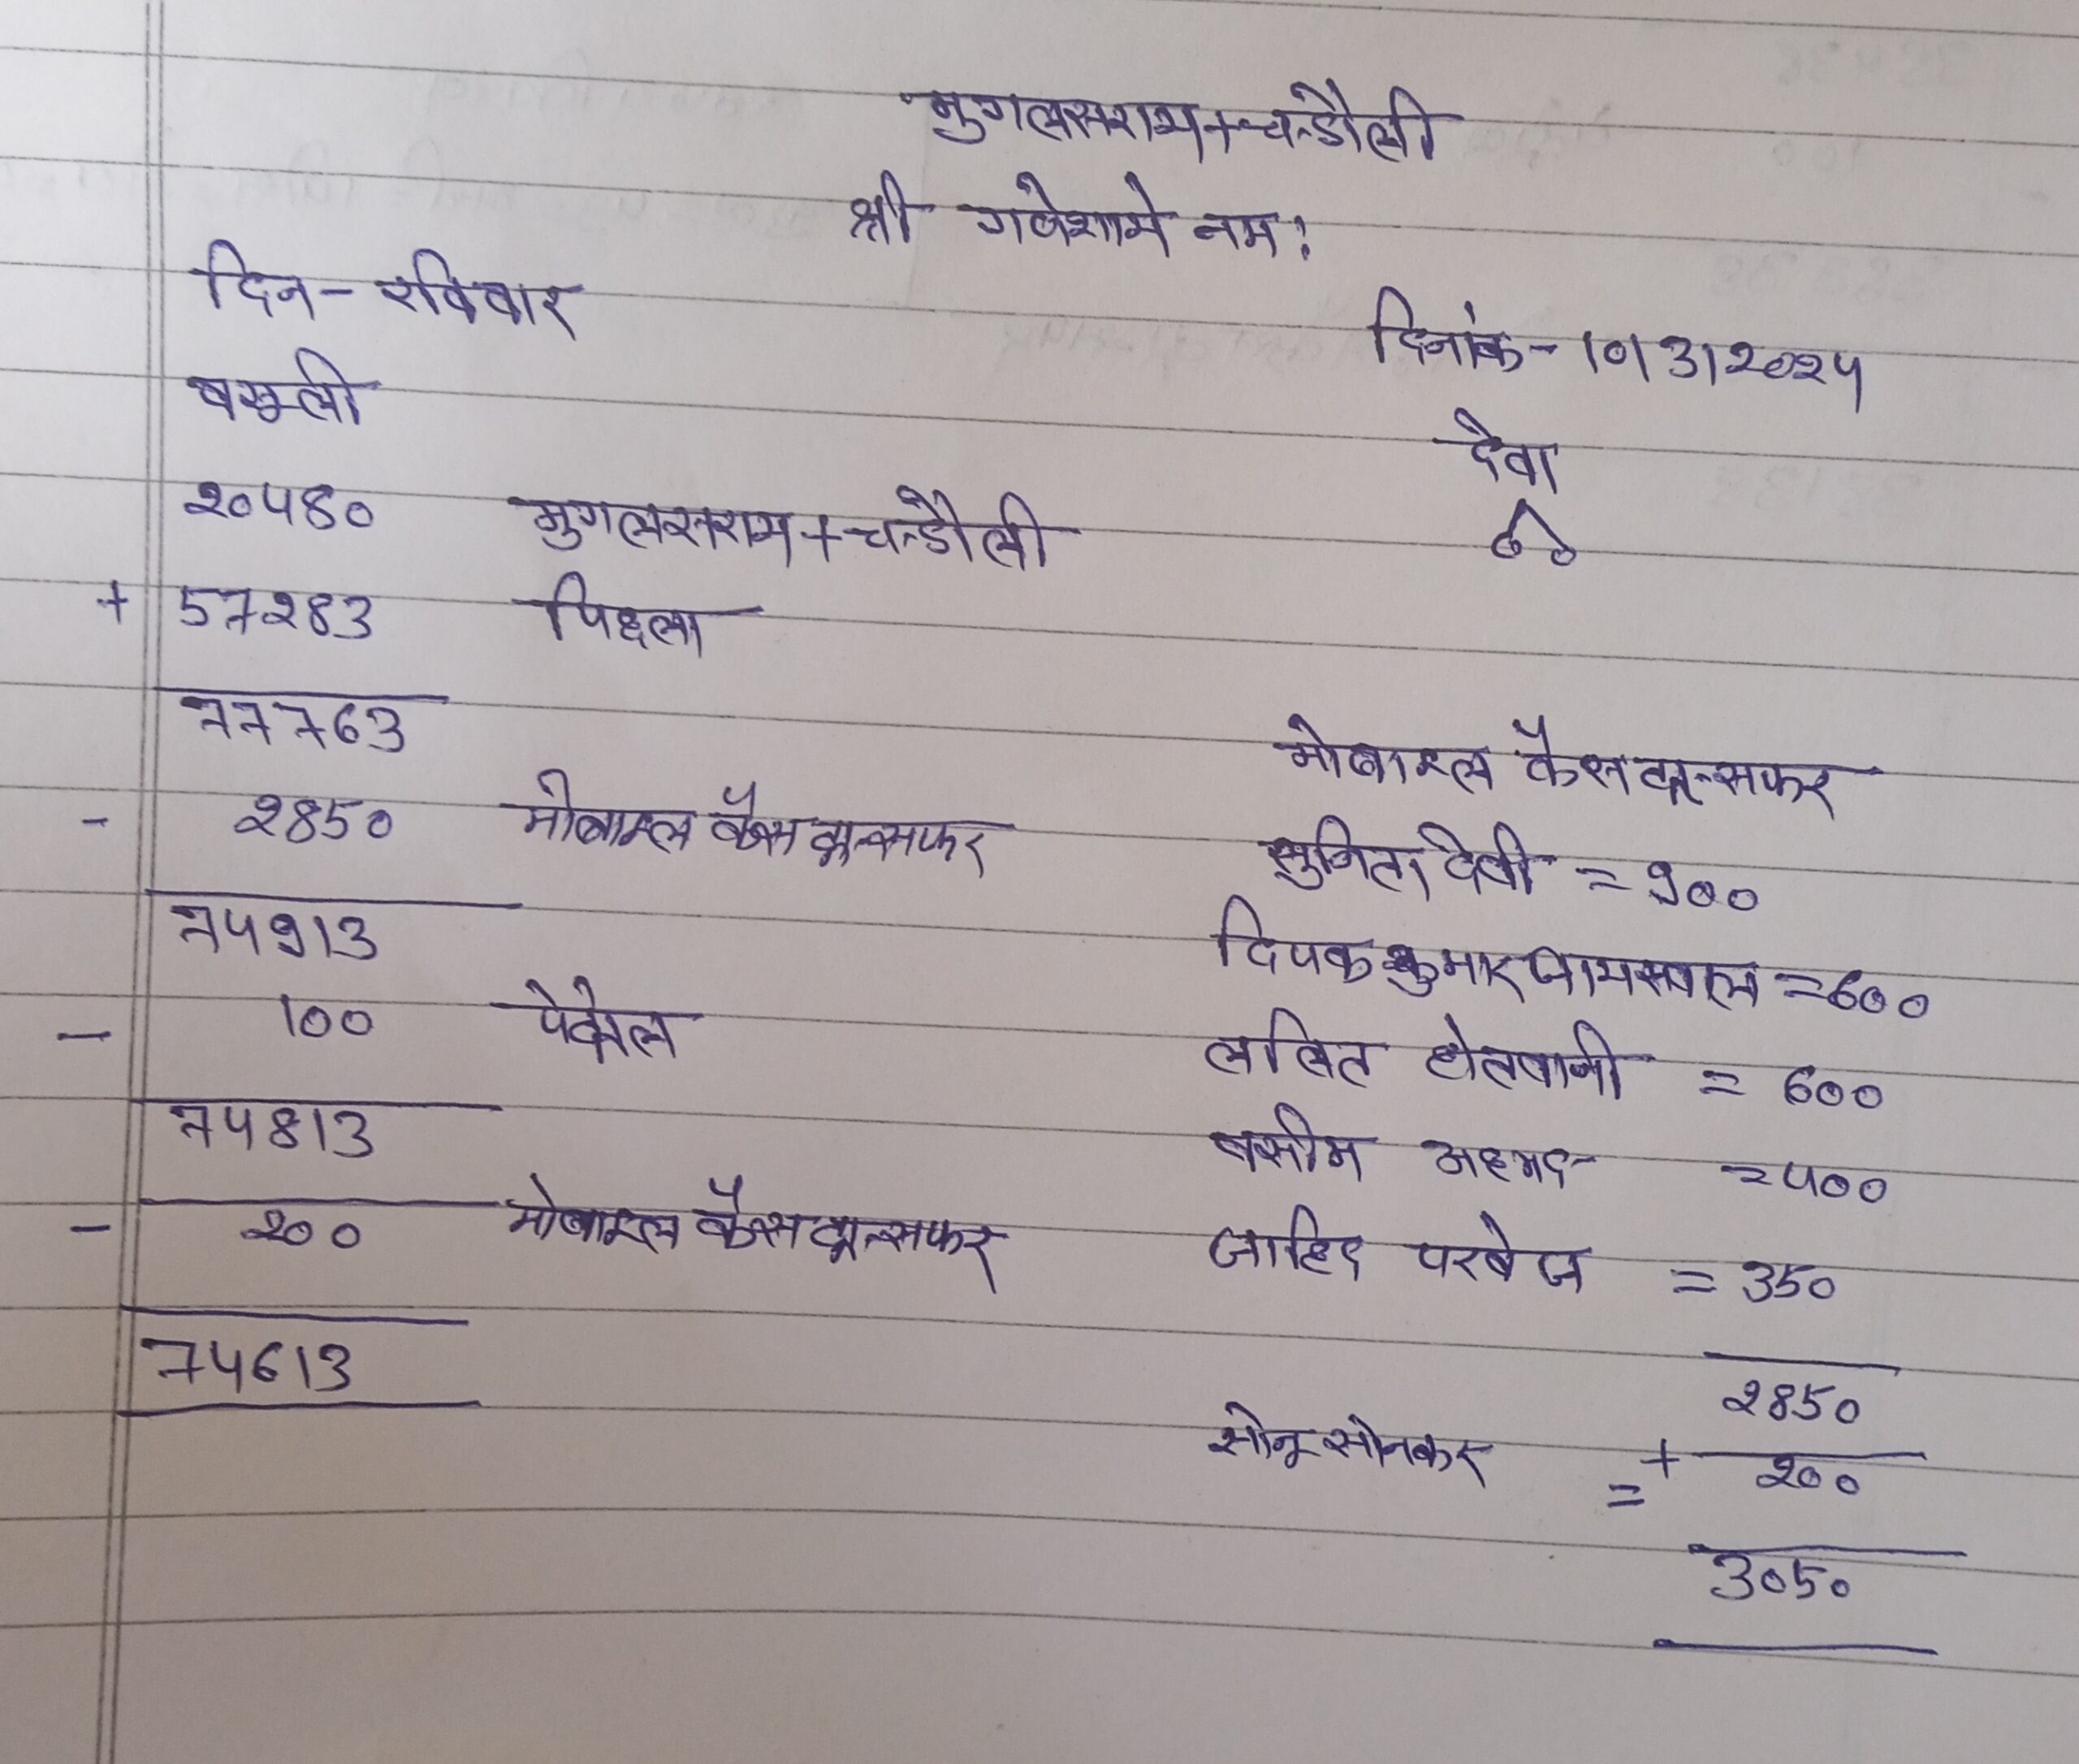 मुगलसराय+चन्डौली
श्री गणेशाये नमः
दिन- रविवार
दिनांक- 10/3/2024
वसूली
देवा
20480 मुगलसराय+चन्डौली
+ 57283 पिछला
77763
- 2850 मोबाइल कैस ट्रान्सफर
74913
- 100 पेट्रोल
74813
- 200 मोबाइल कैस ट्रान्सफर
74613
मोबाइल कैस ट्रान्सफर
सुनिता देवी = 900
दिपक कुमार जायसवाल = 600
ललित होतवानी = 600
वसीम अहमद = 400
जाहिद परवेज = 350
2850
सोनू सोनकर = + 200
3050